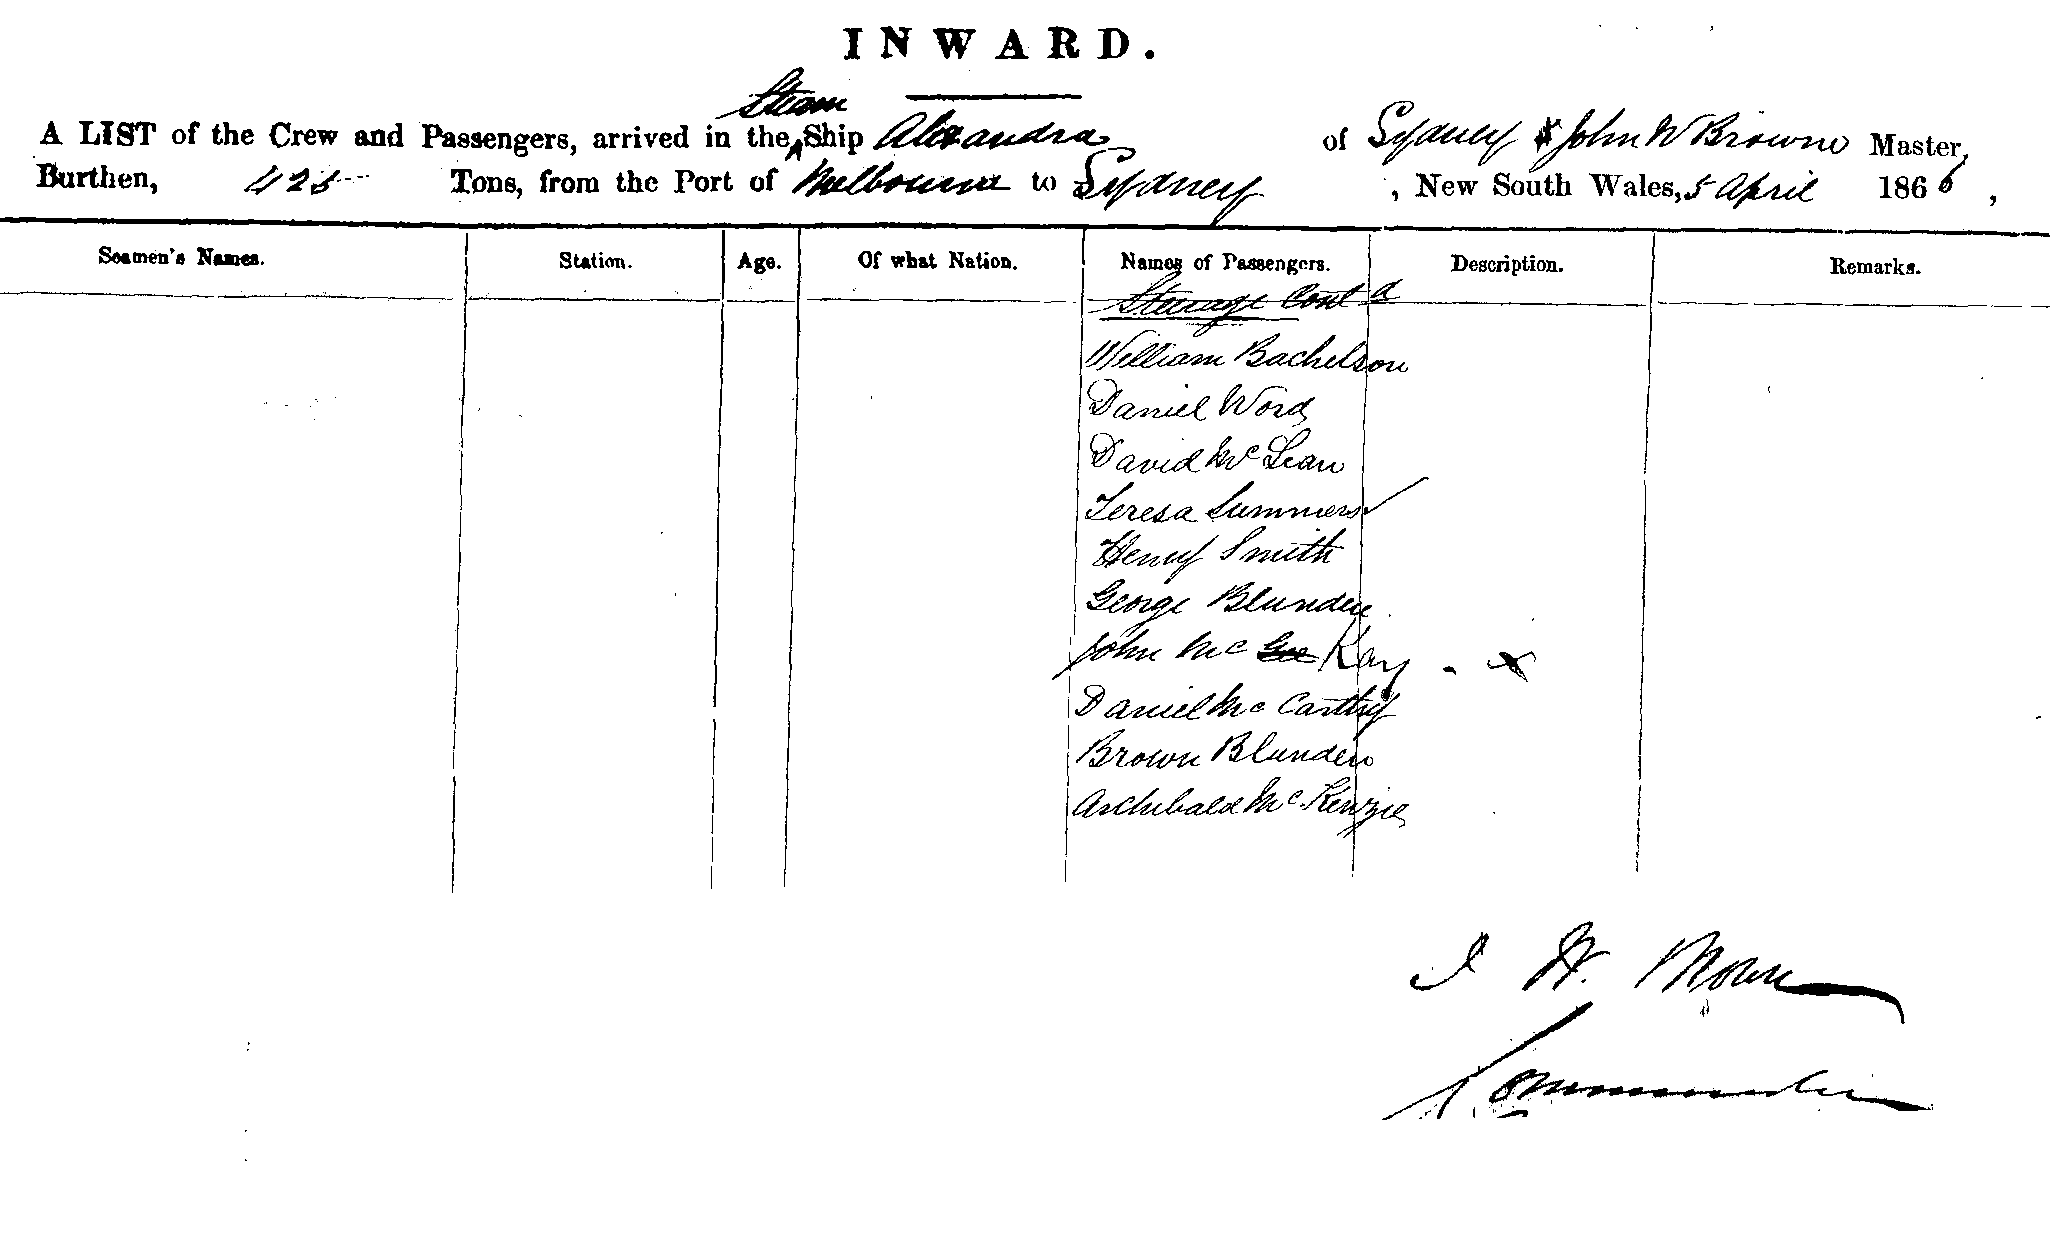 INWARD.
Steam
A LIST of the Crew and Passengers, arrived in the Ship Alexandra of Sydney John W Browne Master,
Burthen, 425 Tons, from the Port of Melbourne to Sydney , New South Wales, 5 April 1866 ,
Seamen's Names. Station. Age. Of what Nation. Names of Passengers. Description. Remarks.
Steerage Cont d
William Bachelson
Daniel Word
David Mc Lean
Teresa Summers
Henry Smith
George Blunden
John Mc Gee Kay - x
Daniel Mc Carthy
Brown Blunden
Archibald Mc Kenzie
J W. Brown
Commander